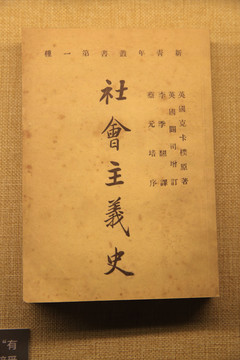 新青年叢書第一種
英國克卡樸原著
英國闢司增訂
李季翻譯
蔡元培序
社會主義史
“有